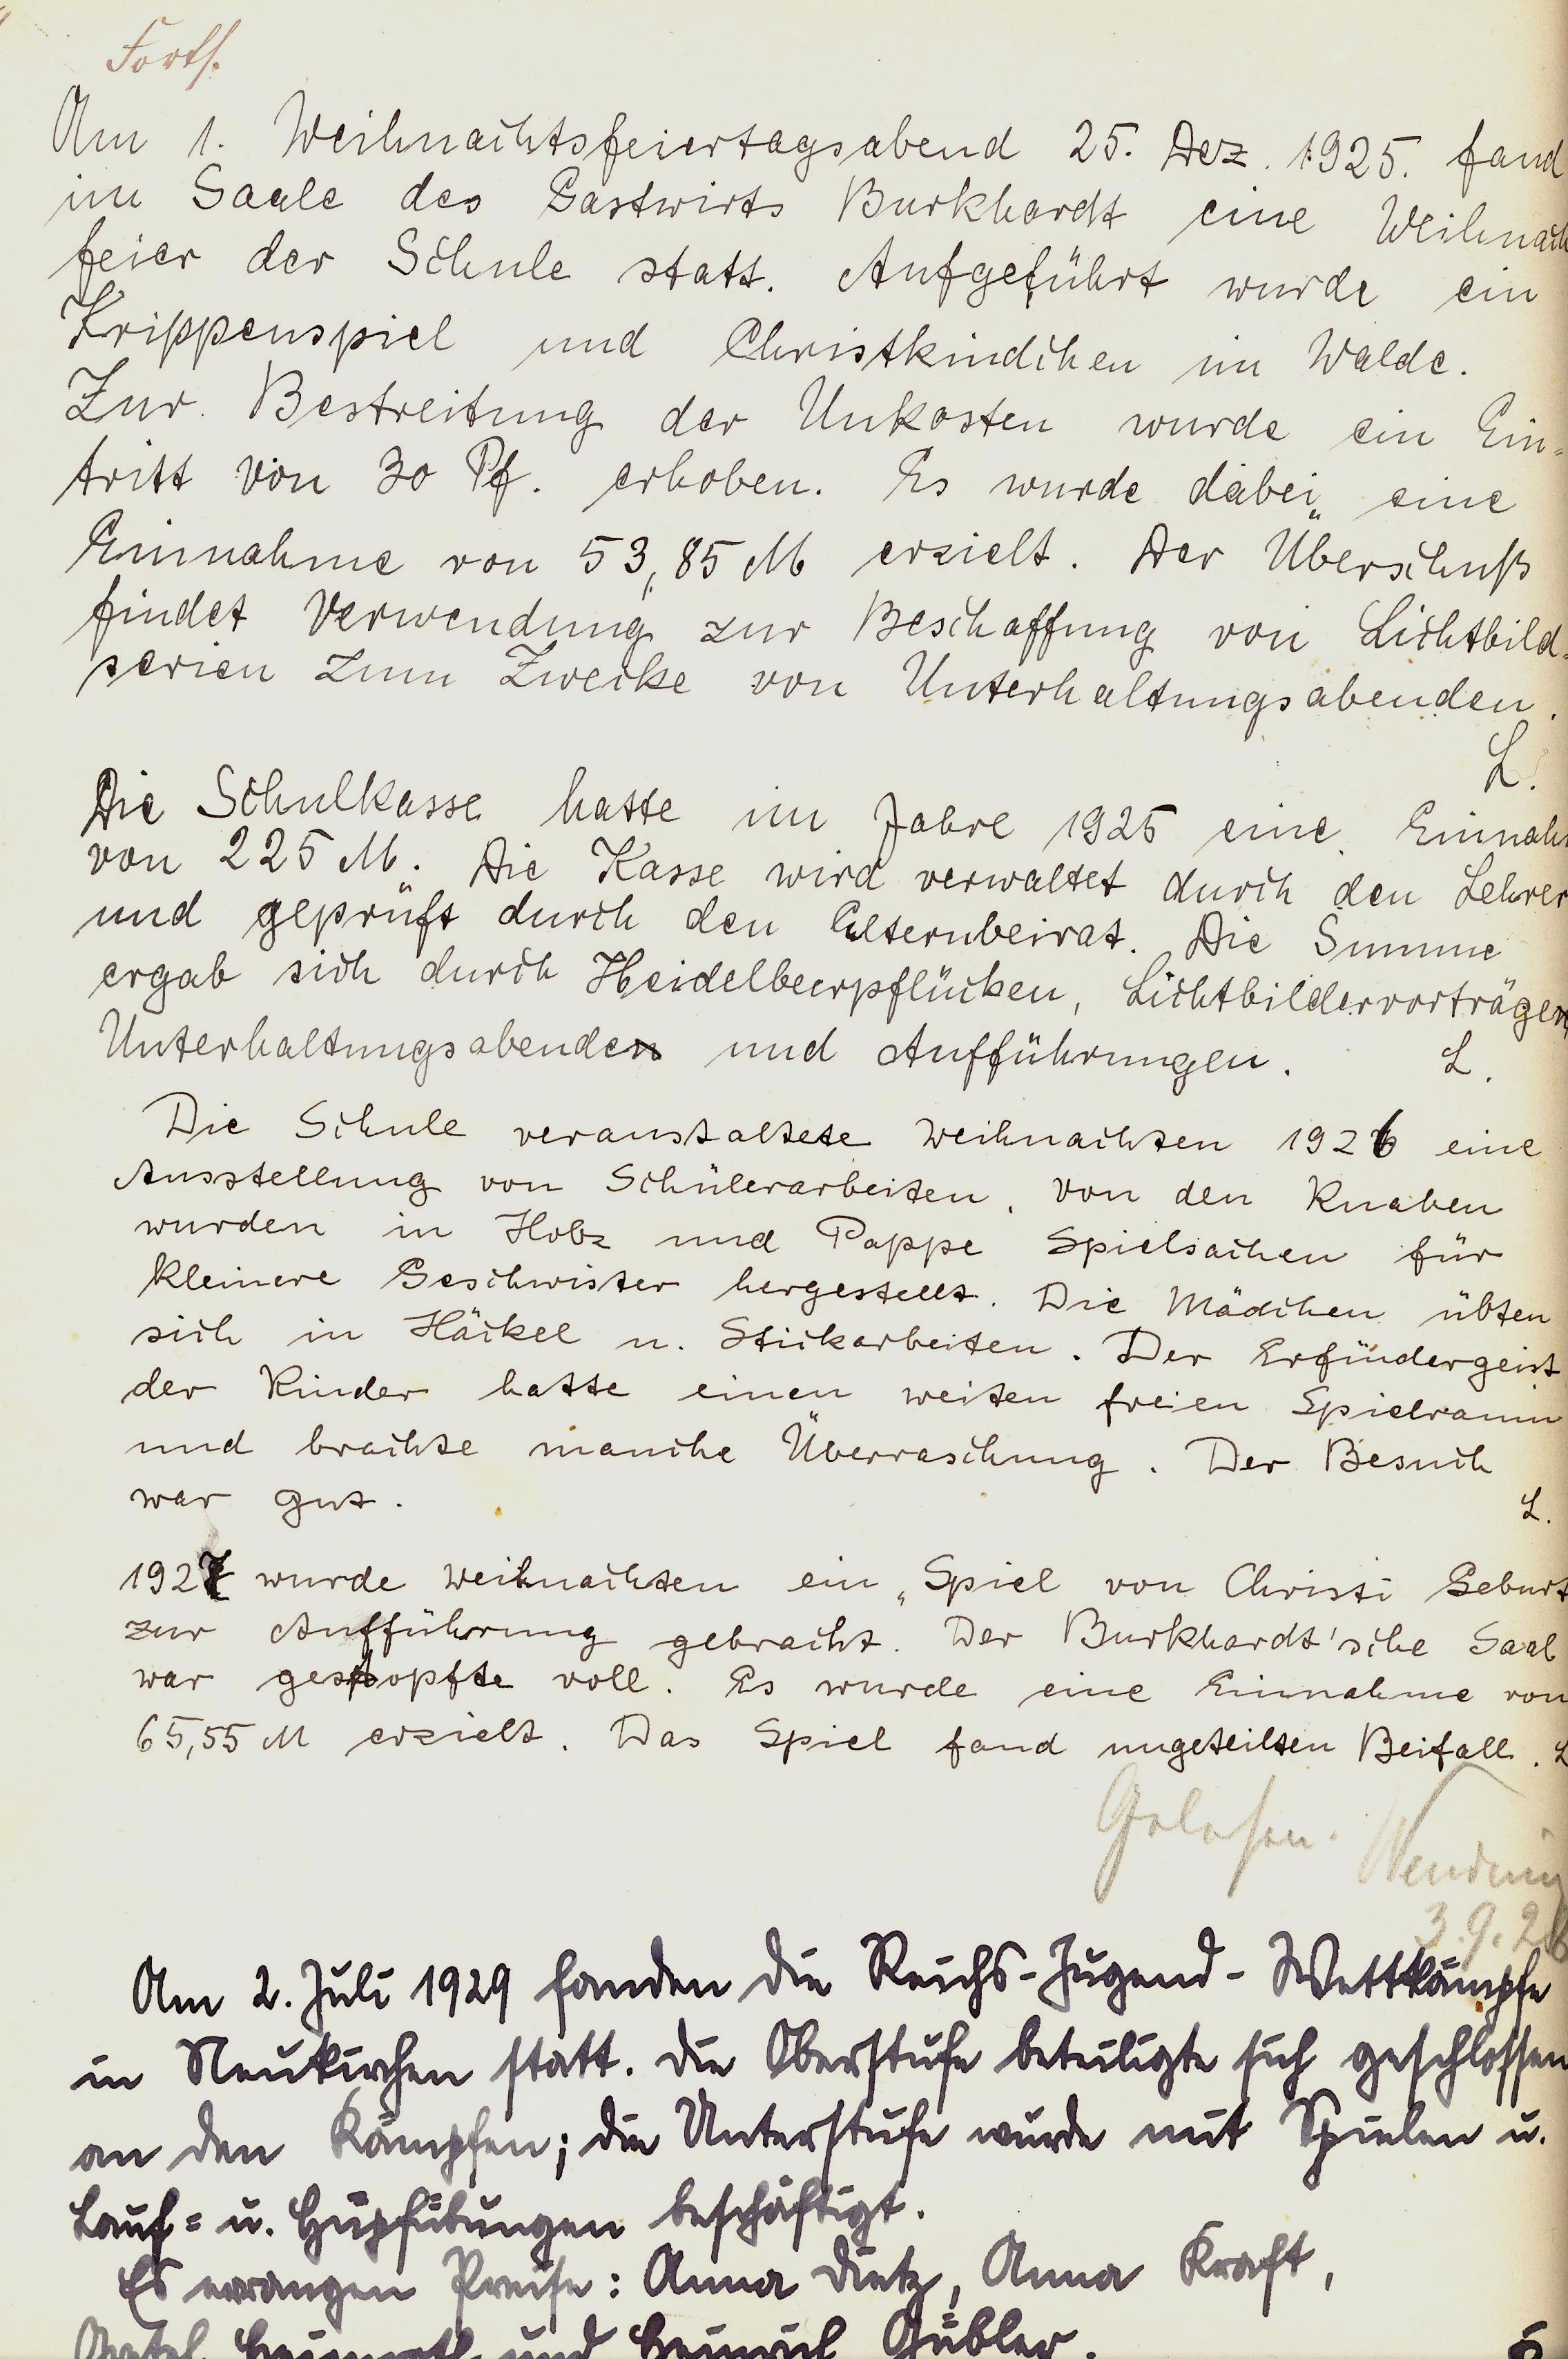 Forts.
Am 1. Weihnachtsfeiertagsabend 25. Dez. 1925. fand
im Saale des Gastwirts Burkhardt eine Weihnach
feier der Schule statt. Aufgeführt wurde ein
Krippenspiel und Christkindchen im Walde.
Zur Bestreitung der Unkosten wurde ein Ein-
tritt von 30 Pf. erhoben. Es wurde dabei eine
Einnahme von 53,85 M erzielt. Der Überschuß
findet Verwendung zur Beschaffung von Lichtbild-
serien zum Zwecke von Unterhaltungsabenden.
L.
Die Schulkasse hatte im Jahre 1925 eine Einnah
von 225 M. Die Kasse wird verwaltet durch den Lehrer
und geprüft durch den Elternbeirat. Die Summe
ergab sich durch Heidelbeerpflücken, Lichtbildervorträgen
Unterhaltungsabenden und Aufführungen. L.
Die Schule veranstaltete Weihnachten 1926 eine
Ausstellung von Schülerarbeiten. Von den Knaben
wurden in Holz und Pappe Spielsachen für
kleinere Geschwister hergestellt. Die Mädchen übten
sich in Häckel u. Stickarbeiten. Der Erfindergeist
der Kinder hatte einen weiten freien Spielraum
und brachte manche Überraschung. Der Besuch
war gut. L.
1927 wurde Weihnachten ein „Spiel von Christi Geburt
zur Aufführung gebracht. Der Burkhardt'sche Saal
war gestopfte voll. Es wurde eine Einnahme von
65,55 M erzielt. Das Spiel fand ungeteilten Beifall. L
Gelesen.
3.9.28
Am 2. Juli 1929 fanden die Reichs-Jugend-Wettkämpfe
in Neukirchen statt. Die Oberstufe beteiligte sich geschlossen
an den Kämpfen; die Unterstufe wurde mit Spielen u.
Lauf- u. Hüpfübungen beschäftigt.
Es errangen Preise: Anna Dietz, Anna Kraft,
und Heinrich Gübler.